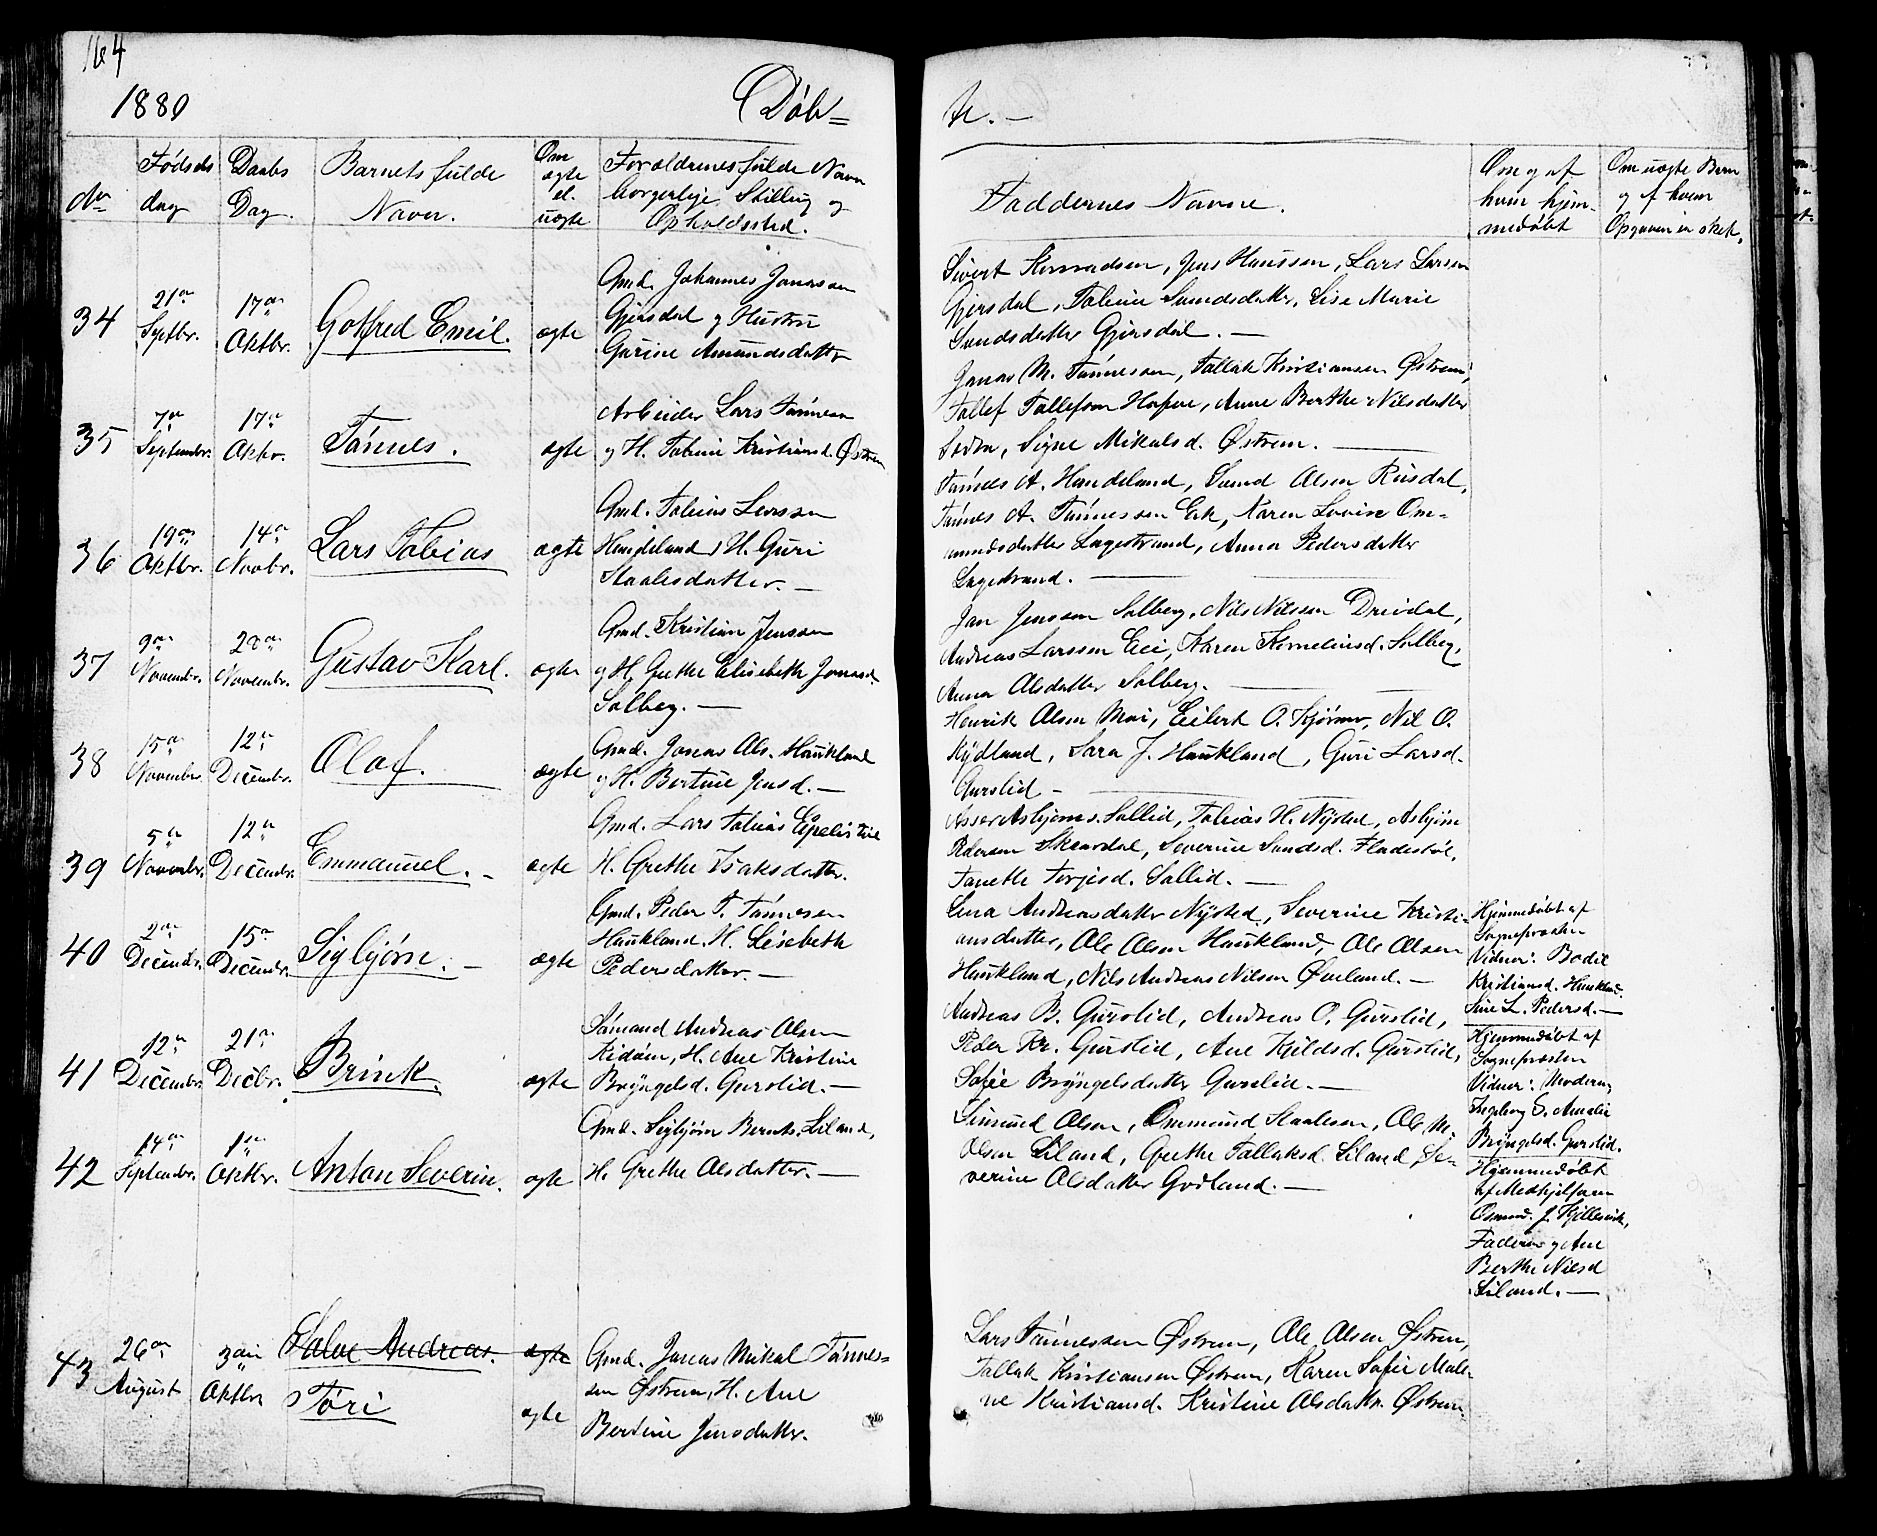 164
1880
Døb=
te. —
No
Fødsels
dag
Daabs
Dag.
Barnets fulde
Navn.
Om
ægte
el.
uægte
Forældrenes fulde Navn
borgerlige Stilling og
Opholdssted.
Faddernes Navne.
Om og af
hvem hjem-
medøbt
Om uægte Børn
og af hvem
Opgaven er skeet.
34
21de
Septbr.
17de
Oktbr.
Gotfred Emil.
ægte
Gmd. Johannes Jonassen
Gjersdal og Hustru
Gurine Amundsdatter
Sivert Konradsen, Jens Hanssen, Lars Larsen
Gjersdal, Tobine Svendsdatter, Lise Marie
Svendsdatter Gjersdal. —
35
7de
Septembr.
17de
Oktbr.
Tønnes.
ægte
Arbeider Lars Tønnesen
og H. Tobine Kristiansd. Østrem
Jonas M. Tønnesen, Tallak Kristiansen Østrem,
Tollef Tollefsen, Anne Berthe Nilsdatter
Signe Mikalsd. Østrem. —
36
19de
Oktbr.
14de
Novbr.
Lars Tobias
ægte
Gmd. Tobias Larssen
Handeland, H. Guri
Staalesdatter. —
Tønnes A. Handeland, Svend Olsen Rusdal,
Tønnes A. Tønnessen Eek, Karen Lovise Om=
mundsdatter Lagestrand, Anna Pedersdatter
Lagestrand. —
37
9de
Novembr.
28de
Novembr.
Gustav Karl.
ægte
Gmd. Kristian Jenssen
og H. Grethe Elisebeth Jonasd.
Solberg. —
Jan Jenssen Solberg, Nils Nilssen Dreidal,
Andreas Larssen Eie, Karen Korneliusd. Solberg,
Anna Olsdatter Solberg. —
38
15de
Novembr.
12te
Decembr.
Olaf.
ægte
Gmd. Jonas Ols. Haukland
og H. Bertine Jensd. —
Henrik Olsen Moi, Eilert O. Nil O.
Rydland, Sara J. Haukland, Guri Larsd.
Gurslid —
39
5te
Novembr.
12te
Decembr.
Emmanuel. —
ægte
Gmd. Lars Tobias
H. Grethe Isaksdatter.
Asser Asbjørns. Sollid, Tobias H. Nysted, Asbjørn
Pedersen Skaardal, Severine Svendsd. Fladestøl,
Tanette Torjesd. Sollid. —
40
2den
Decembr.
15de
Decembr.
Sigbjørn. —
ægte
Gmd. Peder T. Tønnesen
Haukland, H. Lisebeth
Pedersdatter. —
Lena Andreasdatter Nysted, Severine Kristi-
ansdatter, Ole Olsen Haukland, Ole Olsen
Haukland, Nils Andreas Nilsen Øveland. —
Hjemmedøbt af
Sognepresten
Vidner: Bodil
Kristiansd. Haukland.
Sine L. Pedersd. —
41
12te
Decembr.
21de
Decbr.
Brink.
ægte
Sømand Andreas Olsen
H. Ane Kristine
Bryngelsd. Gurslid. —
Andreas B. Gurslid, Andreas O. Gurslid,
Peder Kr. Gurslid, Ane Kjeldsd. Gurslid,
Sofie Bryngelsdatter Gurslid. —
Hjemmedøbt af
Sognepresten
Vidner: Moderen,
Ingeborg S. Amalie
Bryngelsd. Gurslid.
42
14de
Septembr.
1ste
Oktbr.
Anton Severin.
ægte
Gmd. Sigbjørn Bernts. Liland,
H. Grethe Olsdatter. —
Simund Olsen, Ommund Staalesen, Ole M.
Olsen Liland, Grethe Tallaksd. Liland, Se-
verine Olsdatter Godland. —
Hjemmedøbt
af Medhjelperen
Osmund. J. Kjellesvik,
Faderen og Ane
Berthe Nilsd
Liland. —
43
26de
August
3die
Oktbr
Salve Andreas.
ægte
Tori
ægte
Gmd. Jonas Mikal Tønnes=
sen Østrem, H. Ane
Bertine Jensdatter.
Lars Tønnessen Østrem, Ole Olsen Østrem,
Tallak Kristiansen Østrem, Karen Sofie Mali-
ne Kristiansd. Kristine Olsdattr. Østrem.